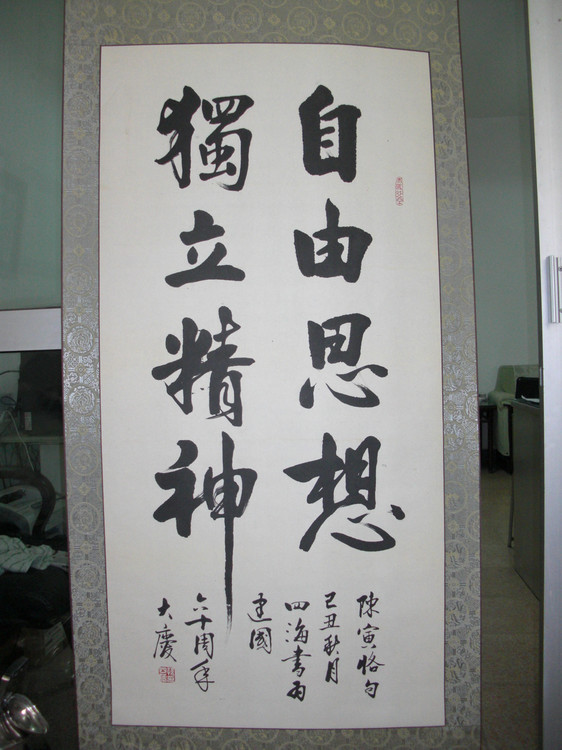 自由思想
獨立精神
陳寅恪句
己丑秋月
四海書為
建國
六十周年
大慶